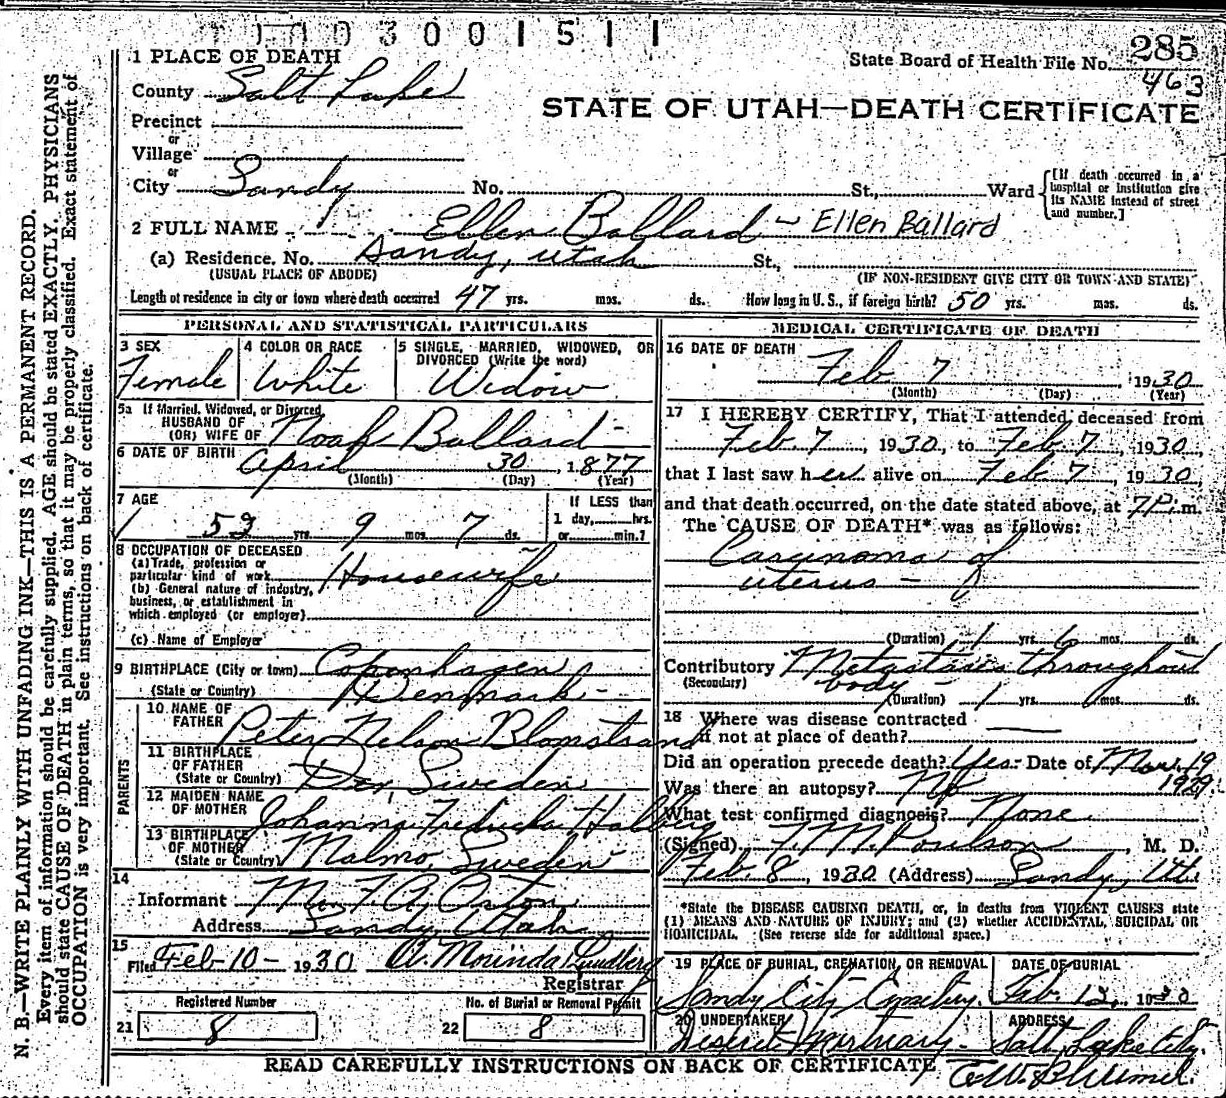 1003001511
1 PLACE OF DEATH
State Board of Health File No. 285
463
County Salt Lake
STATE OF UTAH—DEATH CERTIFICATE
Precinct
or
Village
or
City Sandy No. St., Ward
[If death occurred in a
hospital or institution give
its NAME instead of street
and number.]
2 FULL NAME Ellen Ballard - Ellen Ballard
(a) Residence. No. Sandy, Utah St.,
(USUAL PLACE OF ABODE) (IF NON-RESIDENT GIVE CITY OR TOWN AND STATE)
Length of residence in city or town where death occurred 47 yrs. mos. ds. How long in U. S., if foreign birth? 50 yrs. mos. ds.
PERSONAL AND STATISTICAL PARTICULARS
3 SEX
Female
4 COLOR OR RACE
White
5 SINGLE, MARRIED, WIDOWED, OR
DIVORCED (Write the word)
Widow
5a If Married, Widowed, or Divorced
HUSBAND OF
(OR) WIFE OF Noah Ballard -
6 DATE OF BIRTH April 30, 1877
(Month) (Day) (Year)
7 AGE
52 yrs. 9 mos. 7 ds.
If LESS than
1 day, hrs.
or min.?
8 OCCUPATION OF DECEASED
(a) Trade, profession or
particular kind of work Housewife
(b) General nature of industry,
business, or establishment in
which employed (or employer)
(c) Name of Employer
9 BIRTHPLACE (City or town) Copenhagen
(State or Country) Denmark -
PARENTS
10 NAME OF
FATHER Peter Nelson Blomstrand
11 BIRTHPLACE
OF FATHER
(State or Country) Sweden
12 MAIDEN NAME
OF MOTHER Johanna
13 BIRTHPLACE
OF MOTHER
(State or Country) Malmo, Sweden
14
Informant
Address Sandy, Utah
15
Filed Feb 10 - 1930 Morinda Lundberg
Registrar
Registered Number
21 8
No. of Burial or Removal Permit
22 8
MEDICAL CERTIFICATE OF DEATH
16 DATE OF DEATH
Feb. 7, 1930
(Month) (Day) (Year)
17 I HEREBY CERTIFY, That I attended deceased from
Feb. 7, 1930, to Feb. 7, 1930,
that I last saw her alive on Feb. 7, 1930
and that death occurred, on the date stated above, at 7 P. m.
The CAUSE OF DEATH* was as follows:
Carcinoma of
uterus -
(Duration) 1 yrs. 6 mos. ds.
Contributory Metastasis throughout
(Secondary) body -
(Duration) 1 yrs. 6 mos. ds.
18 Where was disease contracted
if not at place of death?
Did an operation precede death? Yes - Date of Mar. 19
1929.
Was there an autopsy? No
What test confirmed diagnosis? None
(Signed) F. M. Poulson, M. D.
Feb. 8, 1930 (Address) Sandy, Ut.
*State the DISEASE CAUSING DEATH, or, in deaths from VIOLENT CAUSES state
(1) MEANS AND NATURE OF INJURY; and (2) whether ACCIDENTAL, SUICIDAL OR
HOMICIDAL. (See reverse side for additional space.)
19 PLACE OF BURIAL, CREMATION, OR REMOVAL
Sandy City Cemetery.
DATE OF BURIAL
Feb. 12, 1930
20 UNDERTAKER
Deseret Mortuary -
ADDRESS
Salt Lake City.
READ CAREFULLY INSTRUCTIONS ON BACK OF CERTIFICATE
N. B.—WRITE PLAINLY WITH UNFADING INK—THIS IS A PERMANENT RECORD.
Every item of information should be carefully supplied. AGE should be stated EXACTLY. PHYSICIANS
should state CAUSE OF DEATH in plain terms, so that it may be properly classified. Exact statement of
OCCUPATION is very important. See instructions on back of certificate.